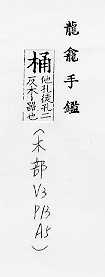 龍龕手鑑
桶
他孔徒孔二
反木ー器也
(木部
V3
P13
A5)